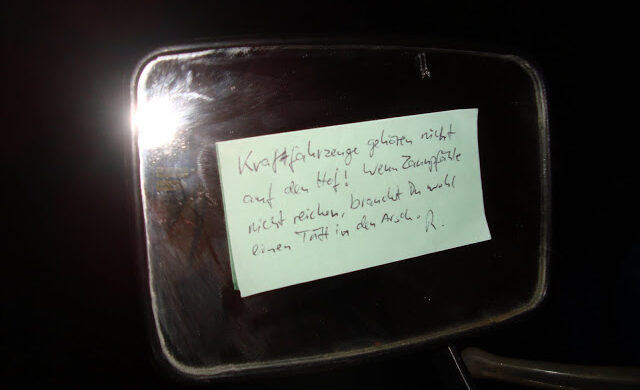 Kraftfahrzeuge gehören nicht
auf den Hof! Wenn Zaunpfähle
nicht reichen, brauchst Du wohl
einen Tritt in den Arsch. R.